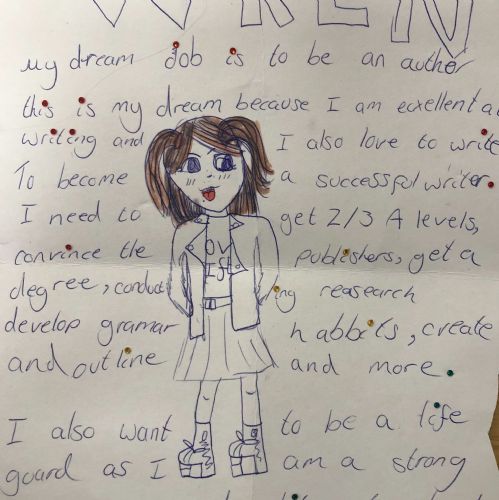 WREN
my dream job is to be an author
this is my dream because I am ecxellent a
writing and I also love to write
To become a successful writer.
I need to get 2/3 A levels,
convince the publishers, get a
degree, conducting reasearch
develop gramar habbits, create
and outline and more.
I also want to be a life
guard as I am a strong